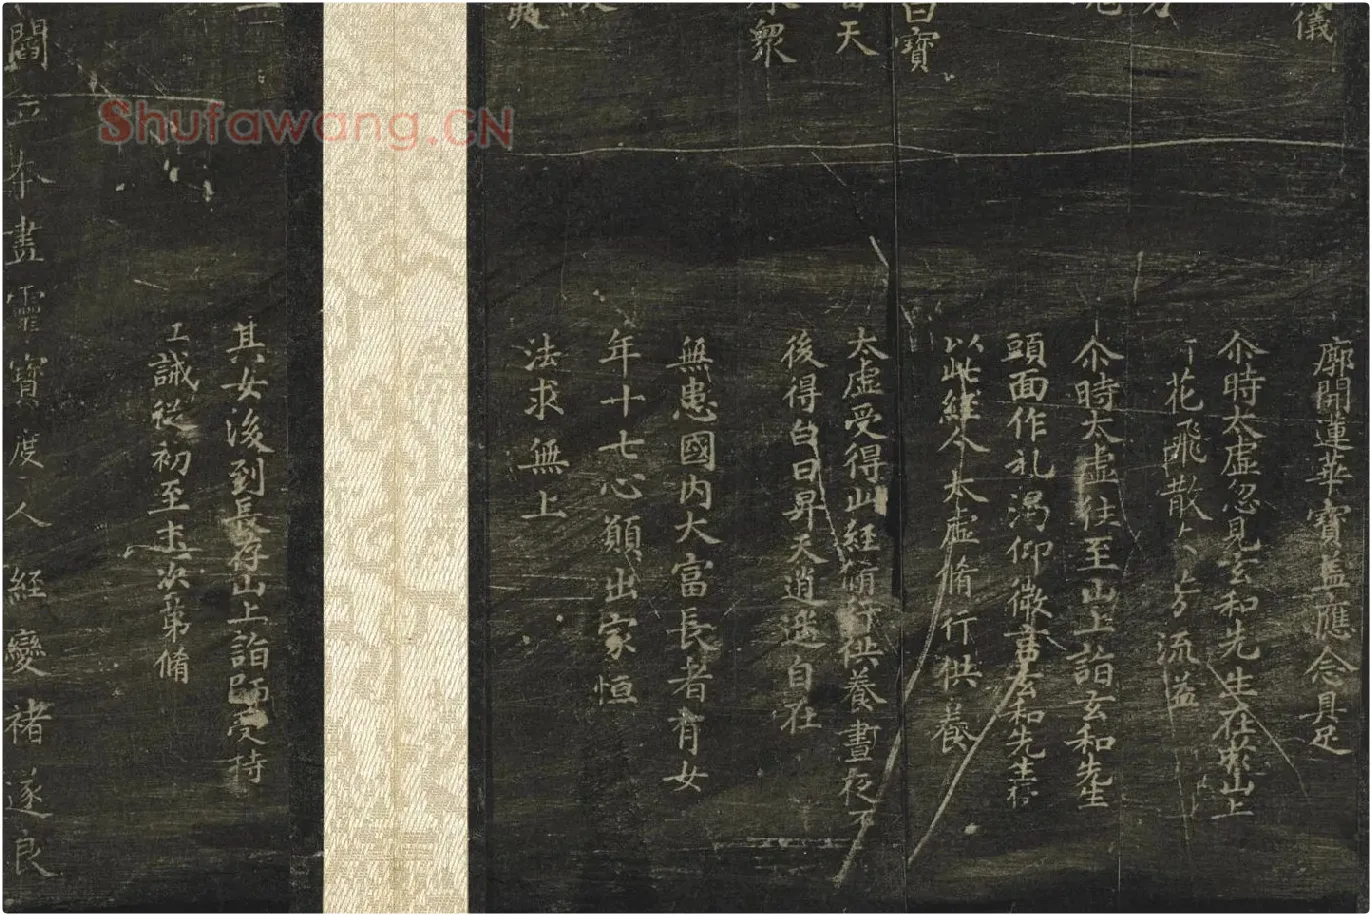 儀
廓開蓮華寶蓋應念具足
尒時太虛忽見玄和先生在山上
花飛散 流
尒時太虛往至山上詣玄和先生
頭面作礼渴仰微言玄和先生
以此經 太虛脩行供養
白寶
當天
太虛受得此經 行供養晝夜不
後得白日昇天逍遥自在
眾
無患國內大富長者有女
年十七心願出家恒
法求無上
其女後到長存山上詣師受持
誡從初至 次第脩
閻立本畫靈寶度人經變褚遂良
Shufawang.CN